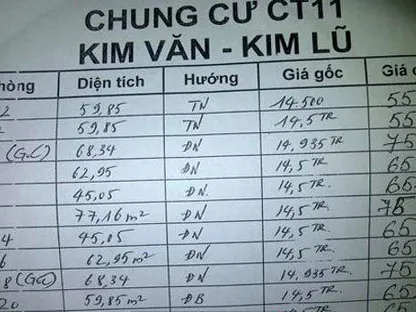 CHUNG CƯ CT11
KIM VĂN - KIM LŨ
hòng Diện tích Hướng Giá gốc Giá c
2 59,85 TN 14.500 55
59,85 TN 14,5 TR 55
(G.C) 68,34 ĐN 14,935 TR 75
62,95 ĐN 14,5 TR 65
45,05 ĐN. 14,5 TR. 65
77,16 m² ĐN 14,5 TR 75
4 45,05 ĐN 14,5 TR. 65
6 62,95 m² ĐN 14,5 TR. 65
8 (Gó) 68,34 ĐN 14,935 TR. 75
20 59,85 m² ĐB 14,5 TR. 65